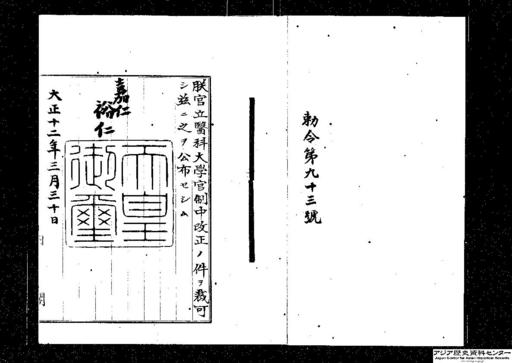 勅令第九十三號
朕官立醫科大學官制中改正ノ件ヲ裁可
シ茲ニ之ヲ公布セシム
嘉仁
裕仁
天皇
御璽
大正十二年三月三十日
アジア歴史資料センター
Japan Center for Asian Historical Records